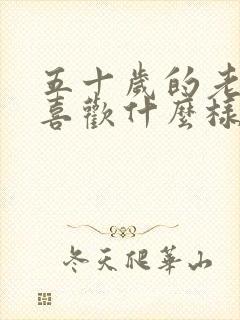 五十歲的老
喜歡什麼樣
冬天爬華山